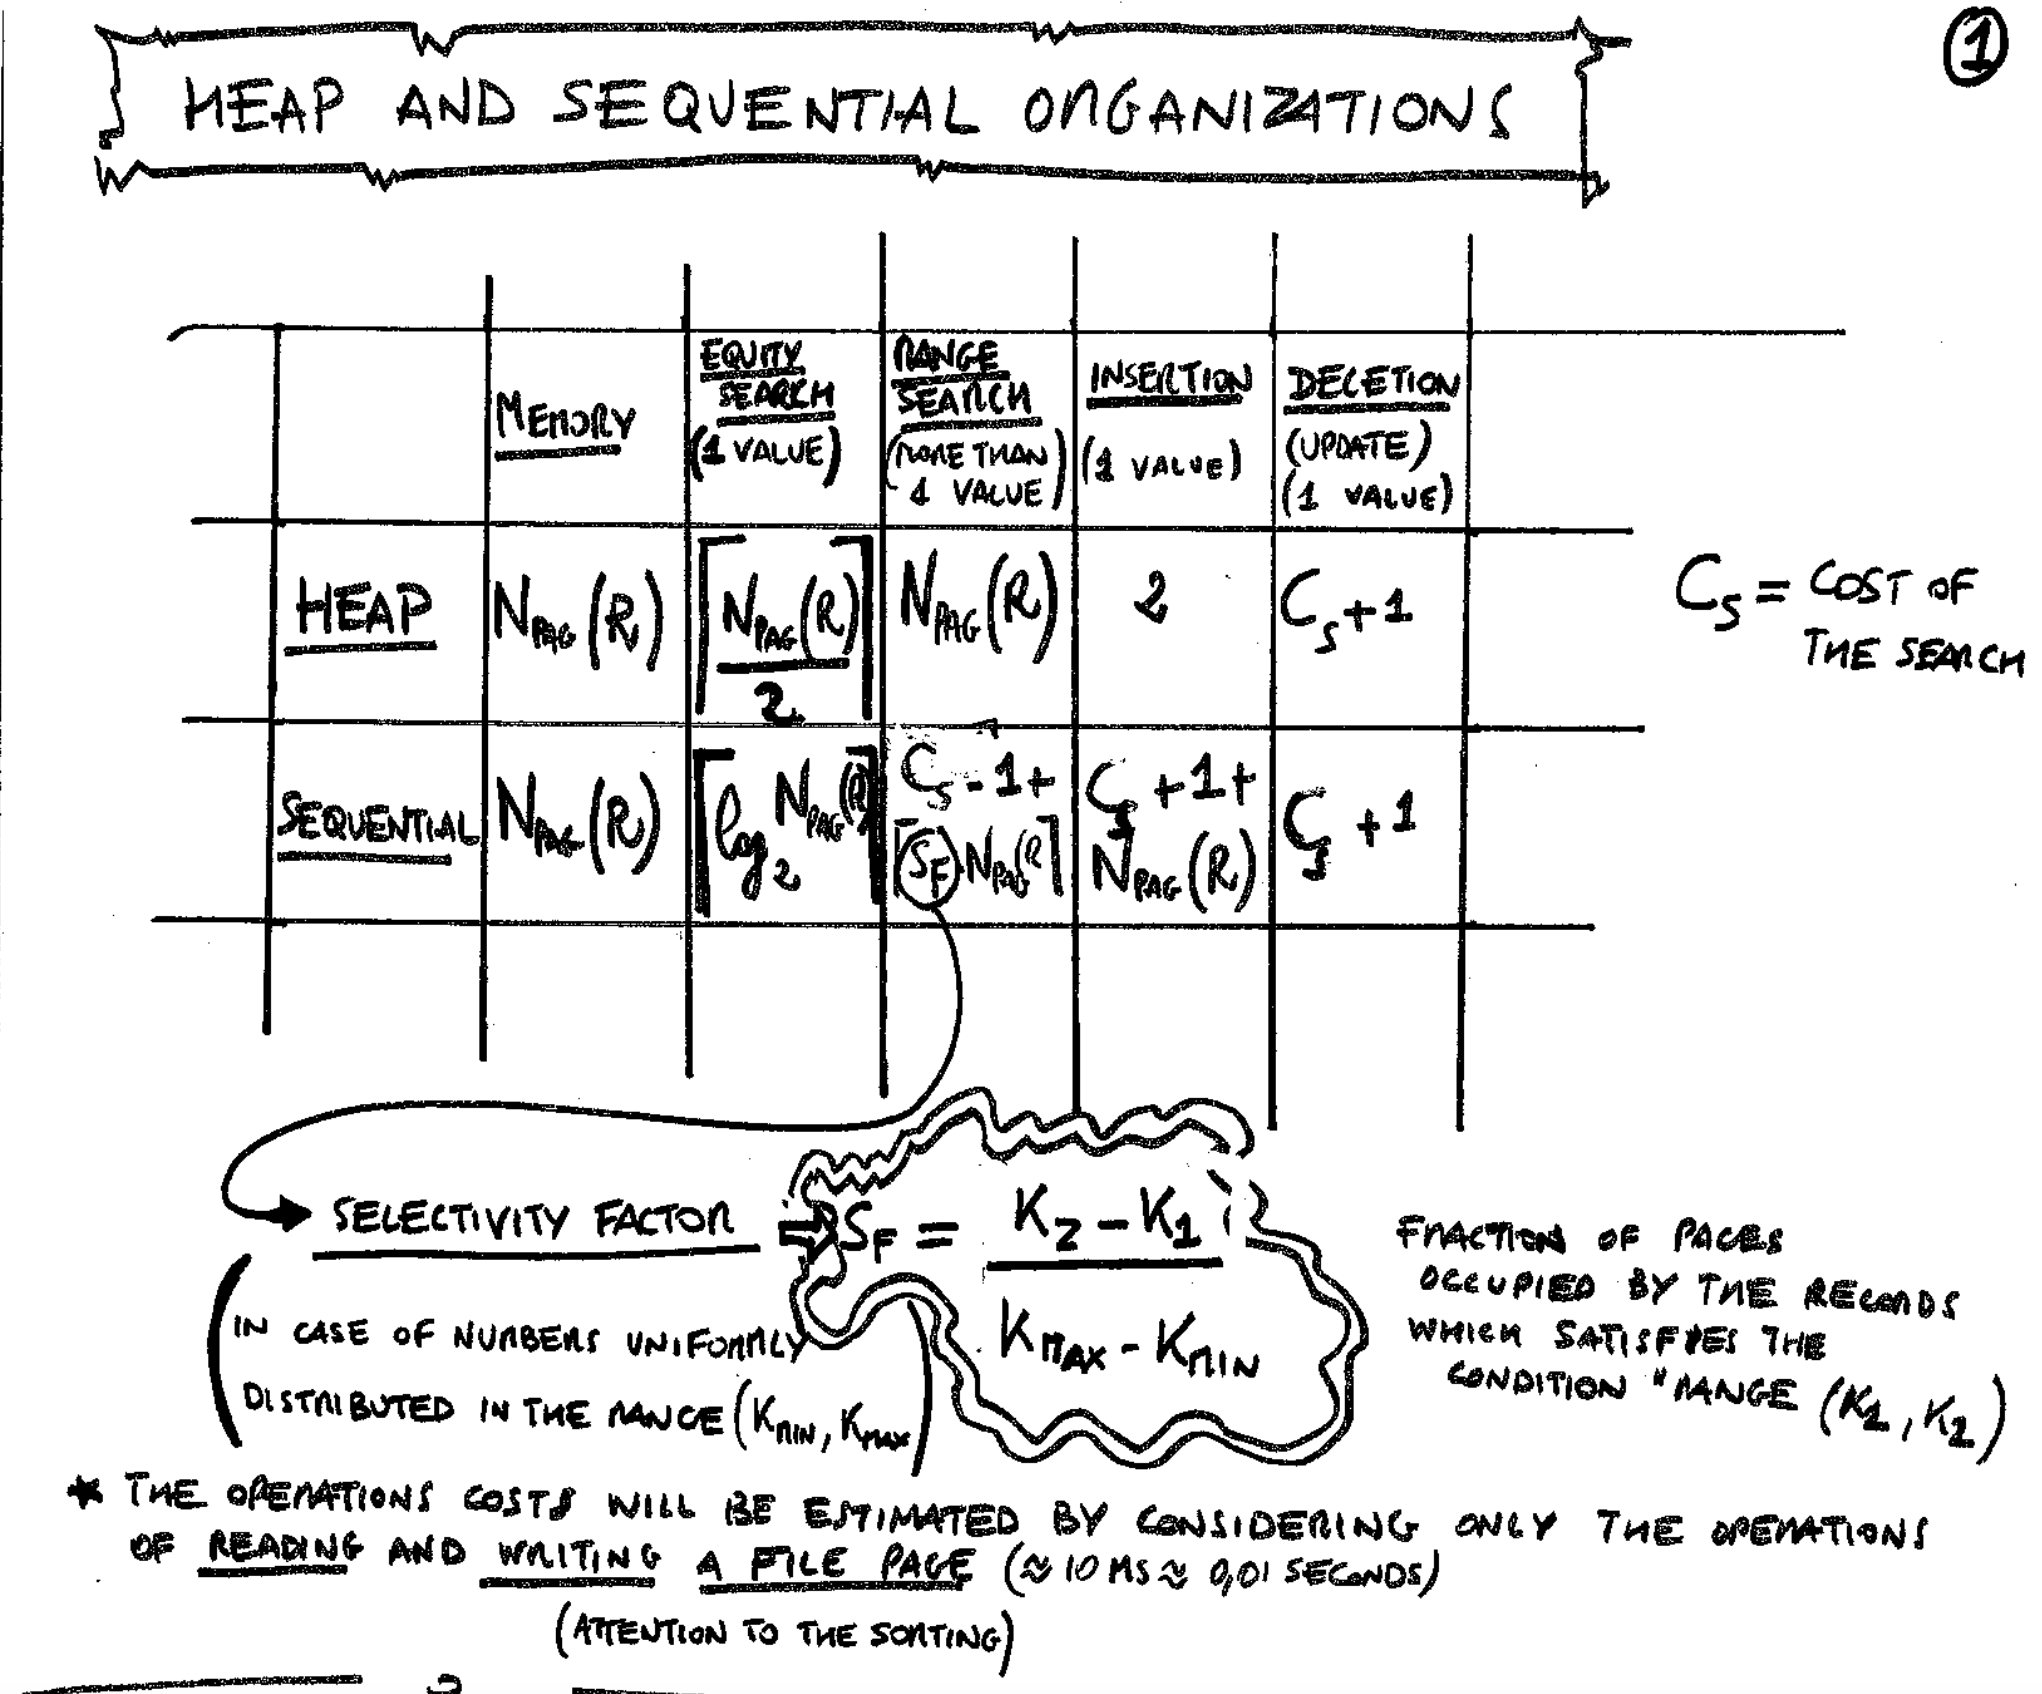 1
HEAP AND SEQUENTIAL ORGANIZATIONS
MEMORY
EQUITY
SEARCH
(1 VALUE)
RANGE
SEARCH
(MORE THAN
1 VALUE)
INSERTION
(1 VALUE)
DELETION
(UPDATE)
(1 VALUE)
HEAP
N_PAG (R)
⌈N_PAG (R) / 2⌉
N_PAG (R)
2
C_S + 1
C_S = COST OF
THE SEARCH
SEQUENTIAL
N_PAG (R)
⌈log_2 N_PAG (R)⌉
C_S - 1 +
⌈S_F · N_PAG (R)⌉
C_S + 1 +
N_PAG (R)
C_S + 1
SELECTIVITY FACTOR ⇒ S_F = K_2 - K_1
K_MAX - K_MIN
(IN CASE OF NUMBERS UNIFORMLY
DISTRIBUTED IN THE RANGE (K_MIN, K_MAX))
FRACTION OF PAGES
OCCUPIED BY THE RECORDS
WHICH SATISFIES THE
CONDITION "RANGE (K_1, K_2)
* THE OPERATIONS COSTS WILL BE ESTIMATED BY CONSIDERING ONLY THE OPERATIONS
OF READING AND WRITING A FILE PAGE (≈ 10 MS ≈ 0,01 SECONDS)
(ATTENTION TO THE SORTING)